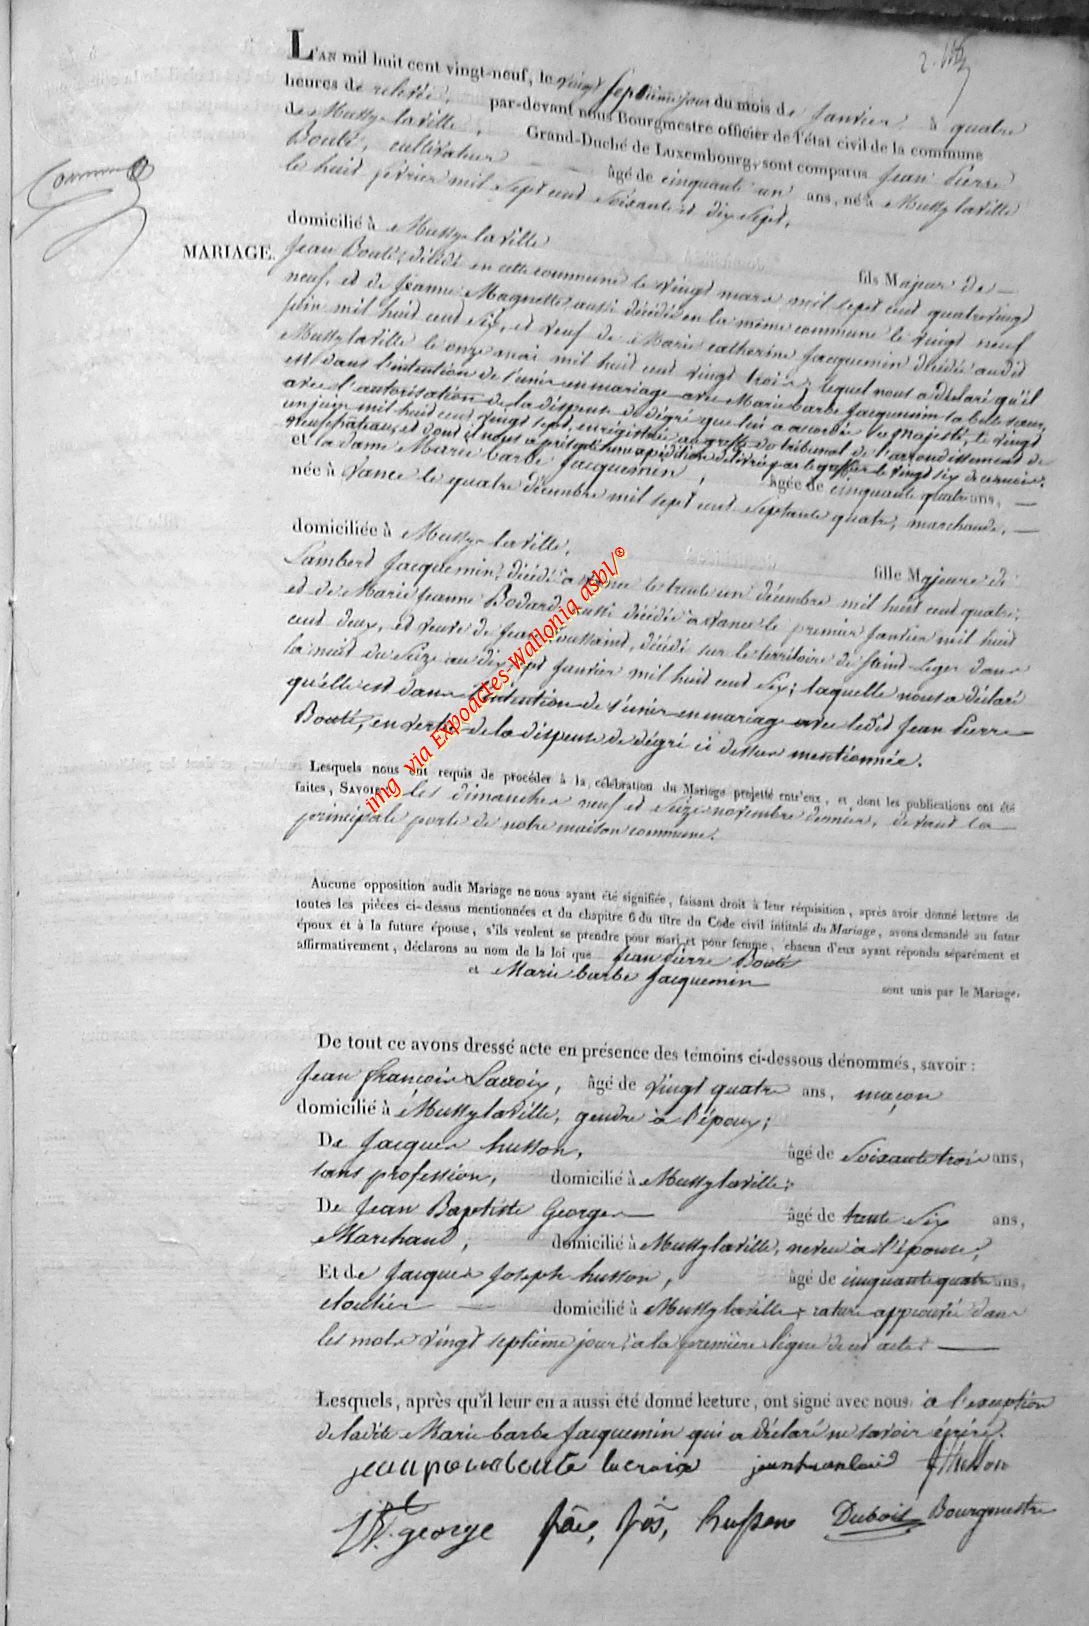 L'AN mil huit cent vingt-neuf, le vingt septième jour du mois de Janvier, à quatre
heures de relevée, par-devant nous Bourgmestre officier de l'état civil de la commune
de Mussy-laville, Grand-Duché de Luxembourg, sont comparus Jean Pierre
Bouté, cultivateur âgé de cinquante un ans, né à Mussy laville
le huit février mil sept cent soixante et dix sept,
domicilié à Mussy-laville
MARIAGE.
fils Majeur de
Jean Bouté, décédé en cette commune le vingt mars mil sept cent quatrevingt
neuf, et de Jeanne Magnette aussi décédée en la même commune le vingt neuf
juin mil huit cent six, et veuf de Marie catherine Jacquemin décédée audit
Mussy laville le onze mai mil huit cent vingt trois; lequel nous a déclaré qu'il
est dans l'intention de s'unir en mariage avec Marie barbe Jacquemin sa belle soeur,
avec l'autorisation de la dispense de dégré que lui a accordée sa Majesté, le vingt
un juin mil huit cent vingt sept, enregistrée au greffe du tribunal de l'arrondissement de
neufchateau, et dont il nous a présenté une expédition délivrée par le greffier le vingt six de ce mois;
et la dame Marie barbe Jacquemin, âgée de cinquante quatre ans,
née à Vance le quatre décembre mil sept cent septante quatre, marchande,
domiciliée à Mussy-laville,
fille Majeure de
Lambert Jacquemin, décédé à Vance le trente un décembre mil huit cent quatre,
et de Marie Jeanne Bodard aussi décédée à Vance le premier Janvier mil huit
cent deux, et veuve de Jean Toussaint, décédé sur le territoire de Saint Leger dans
la nuit du seize au dix sept Janvier mil huit cent six; laquelle nous a déclaré
qu'elle est dans l'intention de s'unir en mariage avec ledit Jean Pierre
Bouté, en vertu de la dispense de dégré ci dessus mentionnée.
Lesquels nous ont requis de procéder à la célébration du Mariage projetté entr'eux, et dont les publications ont été
faites, SAVOIR: les dimanches neuf et seize novembre dernier, devant la
principale porte de notre maison commune.
Aucune opposition audit Mariage ne nous ayant été signifiée, faisant droit à leur réquisition, après avoir donné lecture de
toutes les pièces ci-dessus mentionnées et du chapitre 6 du titre du Code civil intitulé du Mariage, avons demandé au futur
époux et à la future épouse, s'ils veulent se prendre pour mari et pour femme, chacun d'eux ayant répondu séparément et
affirmativement, déclarons au nom de la loi que Jean Pierre Bouté
et Marie barbe Jacquemin
sont unis par le Mariage.
De tout ce avons dressé acte en présence des témoins ci-dessous dénommés, savoir:
Jean françois Lacroix, âgé de vingt quatre ans, maçon
domicilié à Mussy laville, gendre à l'époux;
De Jacques husson, âgé de soixante trois ans,
sans profession, domicilié à Mussy laville;
De Jean Baptiste Georges âgé de trente six ans,
Marchand, domicilié à Mussy laville, neveu à l'épouse;
Et de Jacques Joseph husson, âgé de cinquante quatre ans,
cloutier domicilié à Mussy laville; rature approuvée dans
les mots vingt septième jour, à la première ligne de cet acte.
Lesquels, après qu'il leur en a aussi été donné lecture, ont signé avec nous à l'exception
de ladite Marie barbe Jacquemin qui a déclaré ne savoir écrire.
lacroix J husson
george Jos, husson Dubois Bourgmestre
img via Expoactes-Wallonia asbl/®